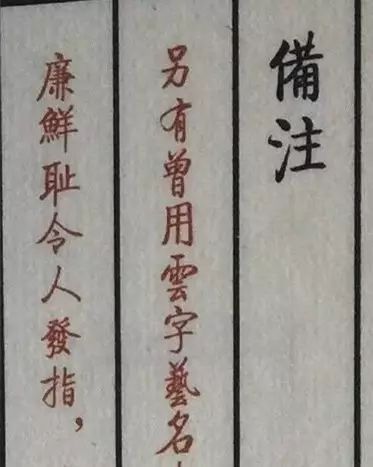 備注
另有曾用雲字藝名
廉鮮耻令人發指，